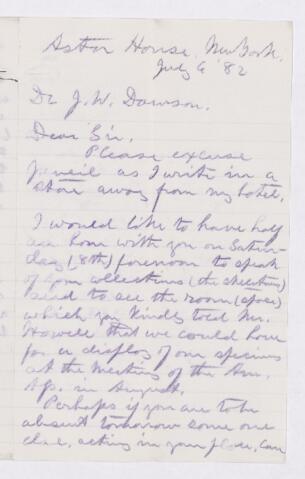 Astor House, New York.
July 6 '82
Dr J. W. Dawson.
Dear Sir.
Please excuse
pencil as I write in a
store away from my hotel.
I would like to have half
an hour with you on Satur-
day (8th) forenoon to speak
of collections (the
and to see the room (space)
which you kindly told Mr.
Howell that we could have
for a display of our specimens
at the meeting of the Am.
in August.
Perhaps if you are to be
absent tomorrow some one
else, acting in your place, can